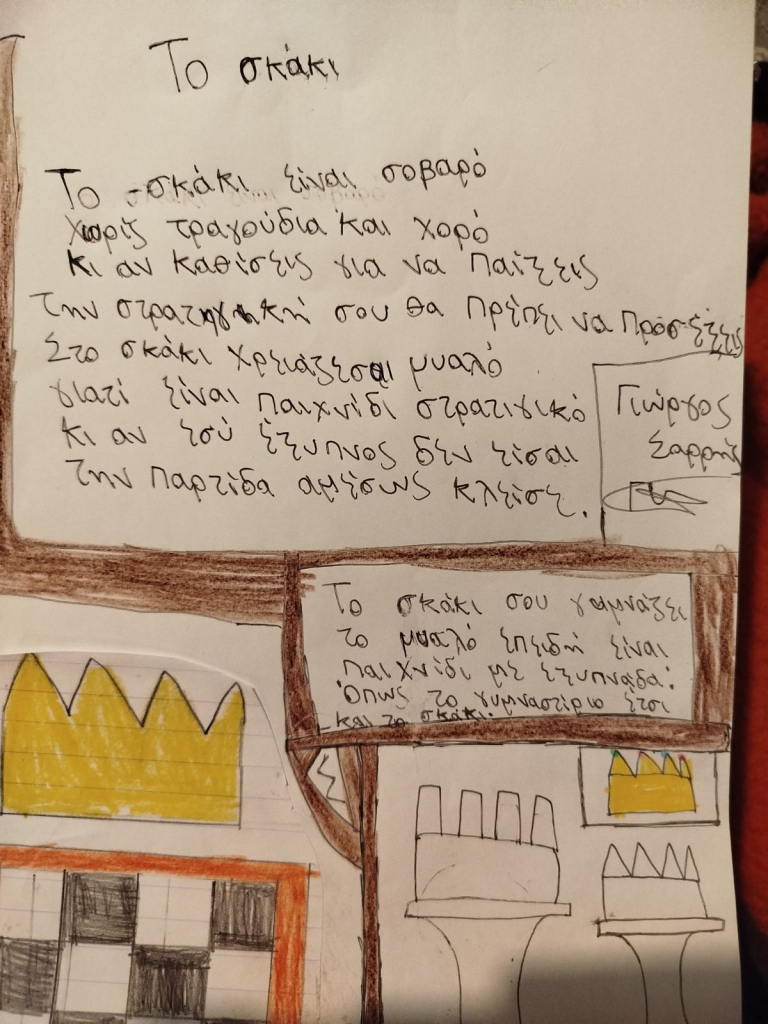 Το σκάκι
Το σκάκι είναι σοβαρό
χωρίς τραγούδια και χορό
κι αν καθίσεις για να παίξεις
την στρατηγική σου θα πρέπει να προσέξεις
Στο σκάκι χρειάζεσαι μυαλό
γιατί είναι παιχνίδι στρατιγικό
κι αν εσύ έξυπνος δεν είσαι
την παρτίδα αμέσως κλείσε.
Γιώργος
Σαρρής
Το σκάκι σου γυμνάζει
το μυαλό επειδή είναι
παιχνίδι με εξυπνάδα.
Όπως το γυμναστίριο έτσι
και το σκάκι.